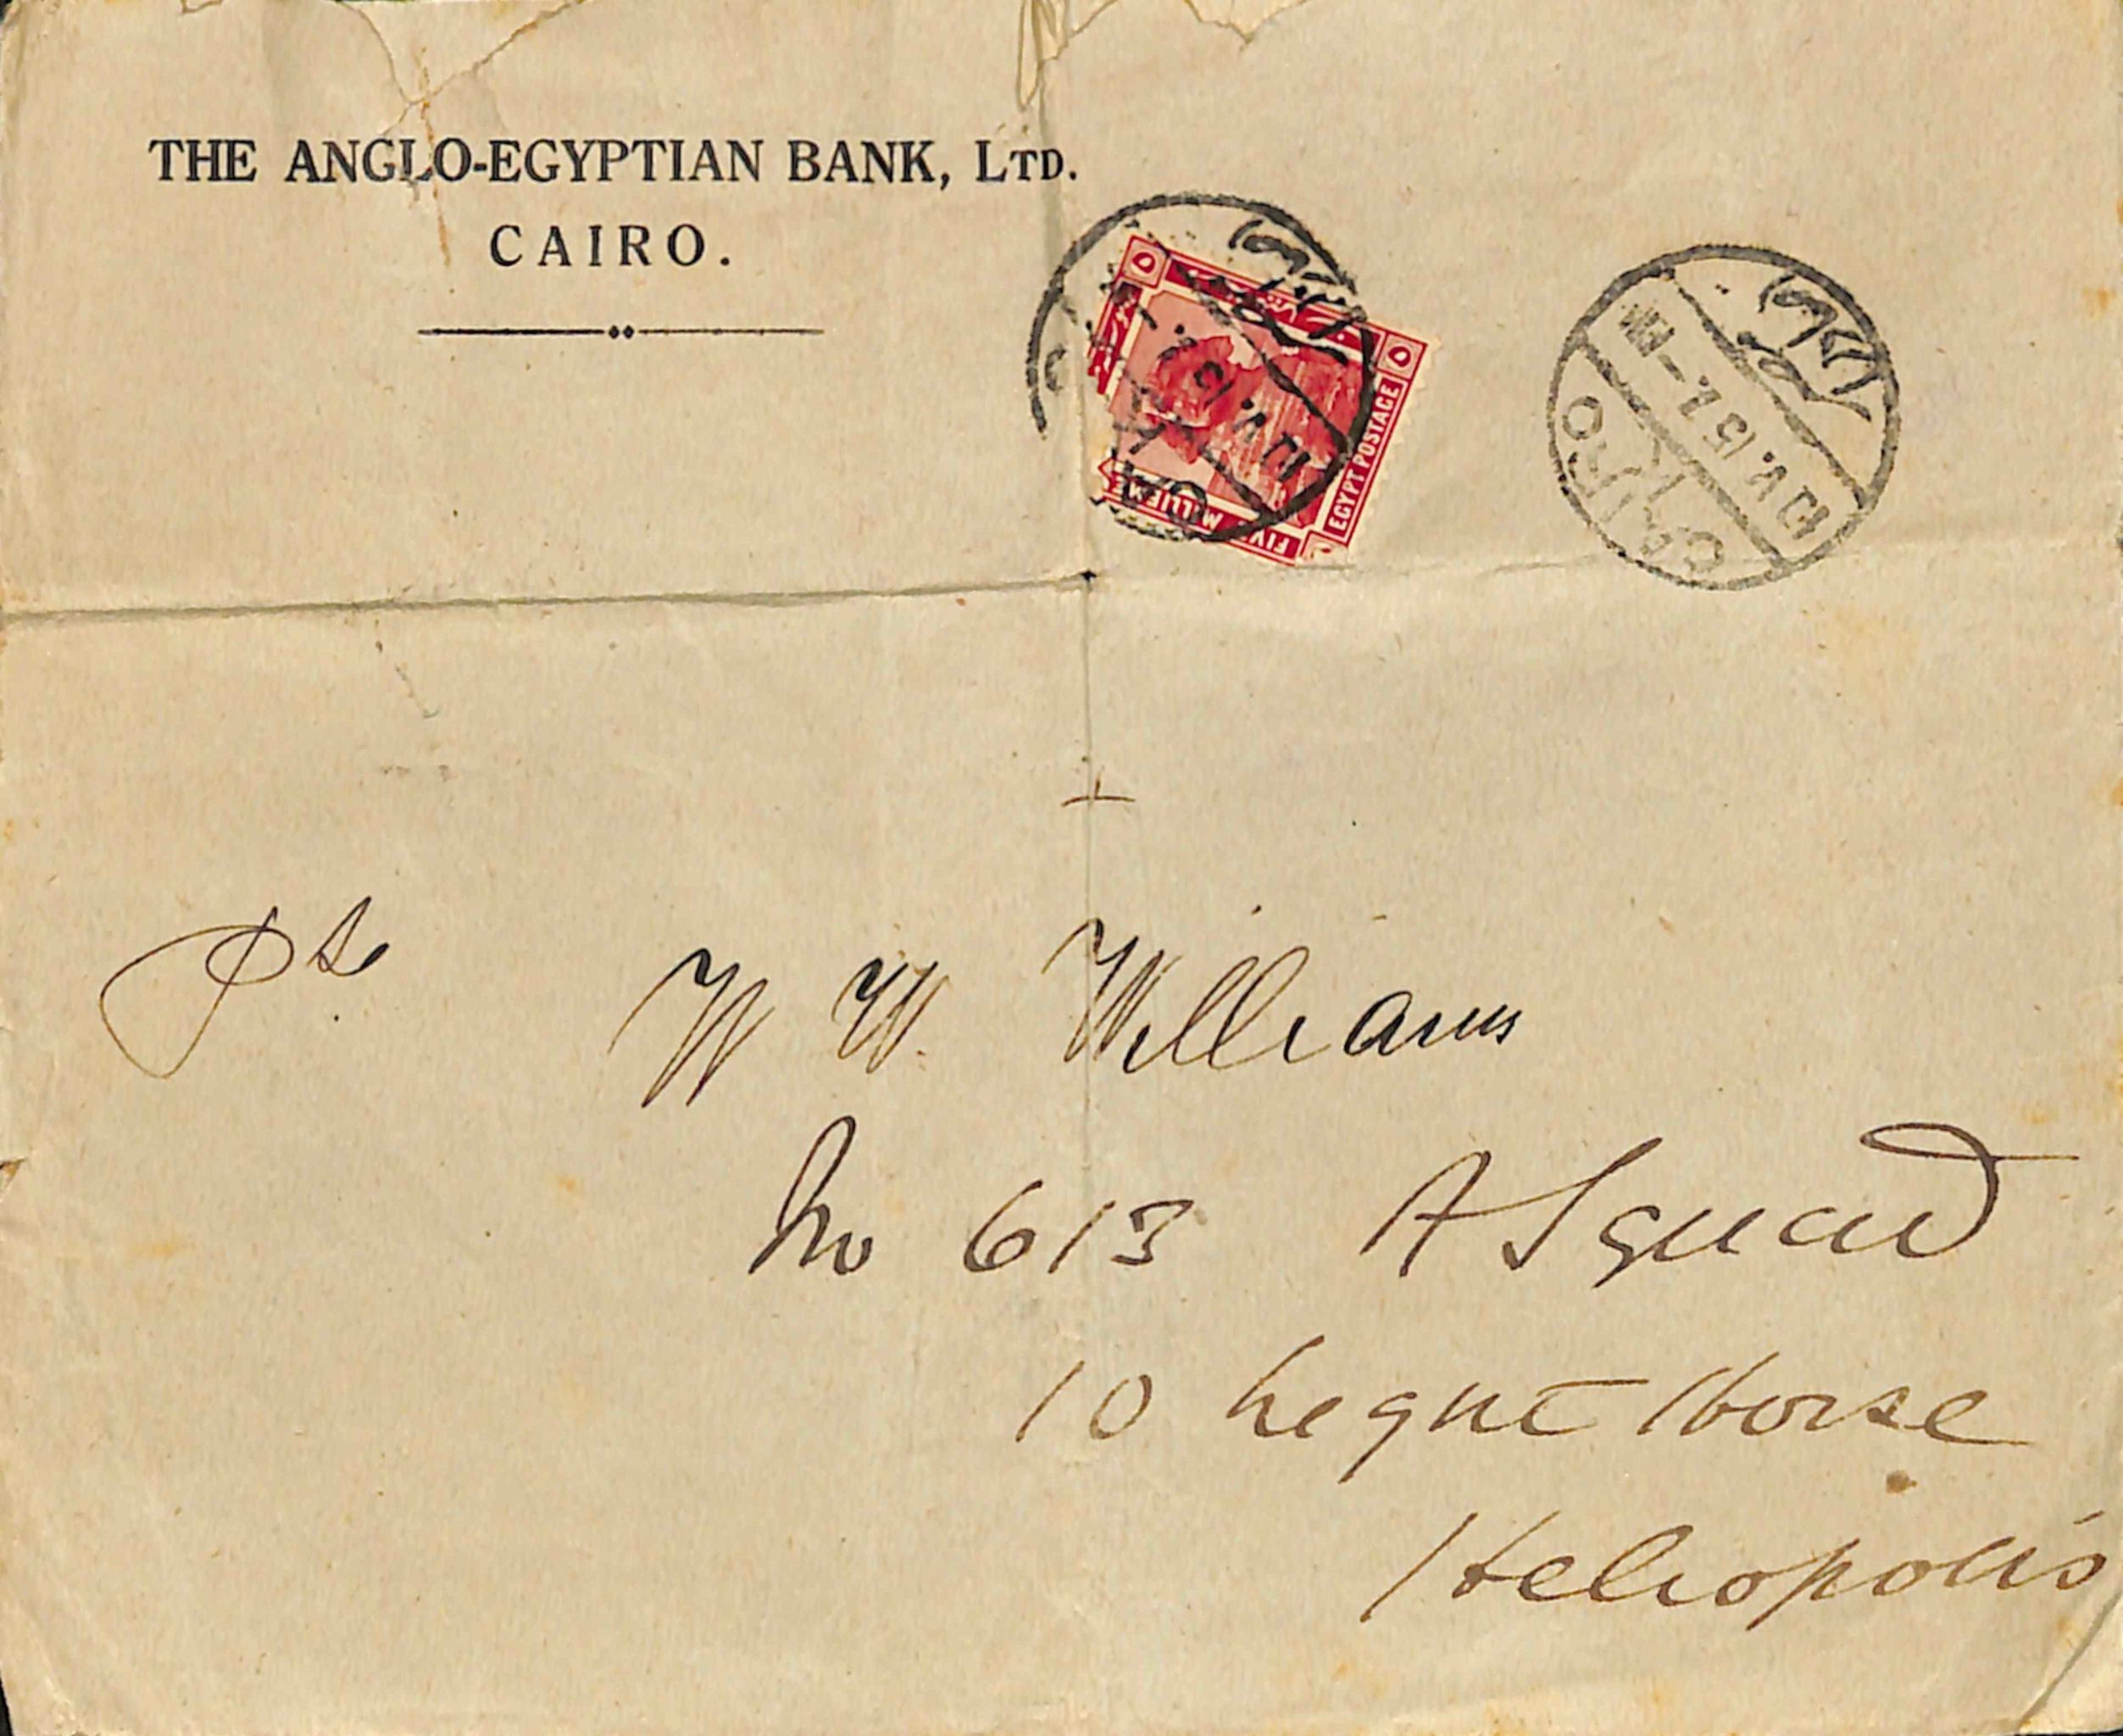 THE ANGLO-EGYPTIAN BANK, LTD.
CAIRO.
EGYPT POSTAGE
FIVE MILLIEMES
CAIRO
Pte W W. Williams
No 613 A Squad
10 Leght Horse
Heliopolis